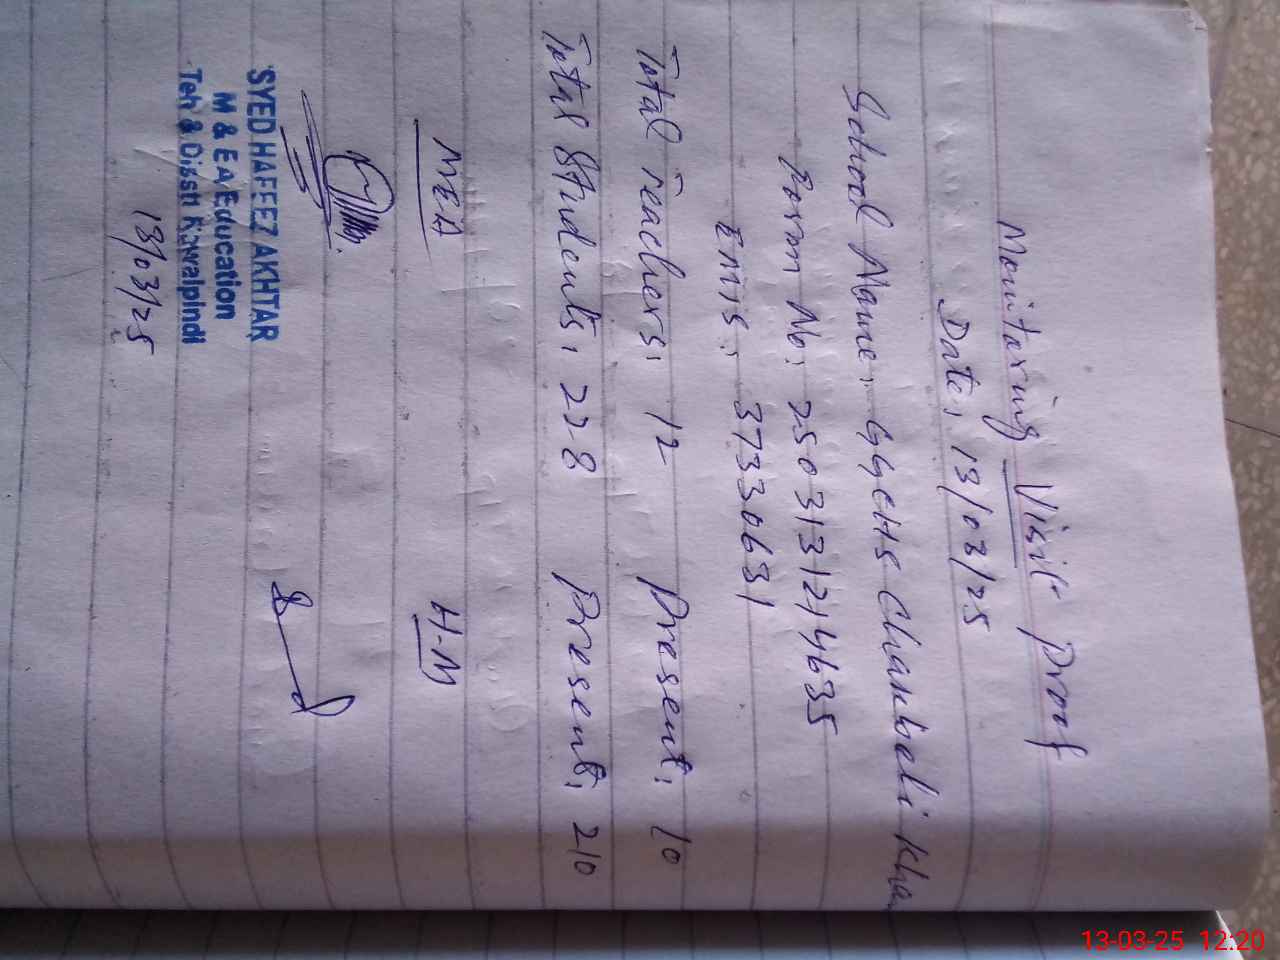 Monitoring Visit Proof
Date: 13/03/25
School Name: GGCHS Chambeli Kha
Form No: 2503131214635
EMIS: 37330631
Total Teachers: 12 Present: 10
Total Students: 228 Present: 210
MEA H-M
SYED HAFEEZ AKHTAR
M & EA Education
Teh & Disstt Rawalpindi
13/03/25
13-03-25 12:20